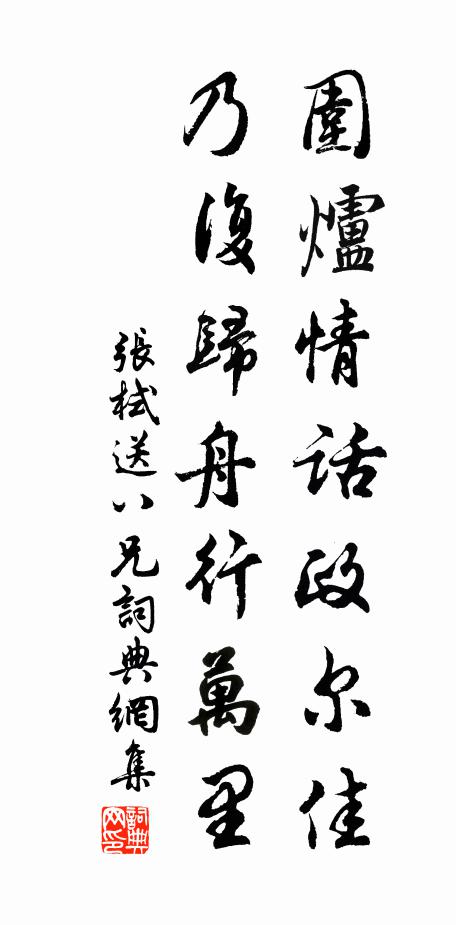 圍爐情話政尔佳
乃復歸舟行萬里
張栻送八兄詞典網集
詞典网印